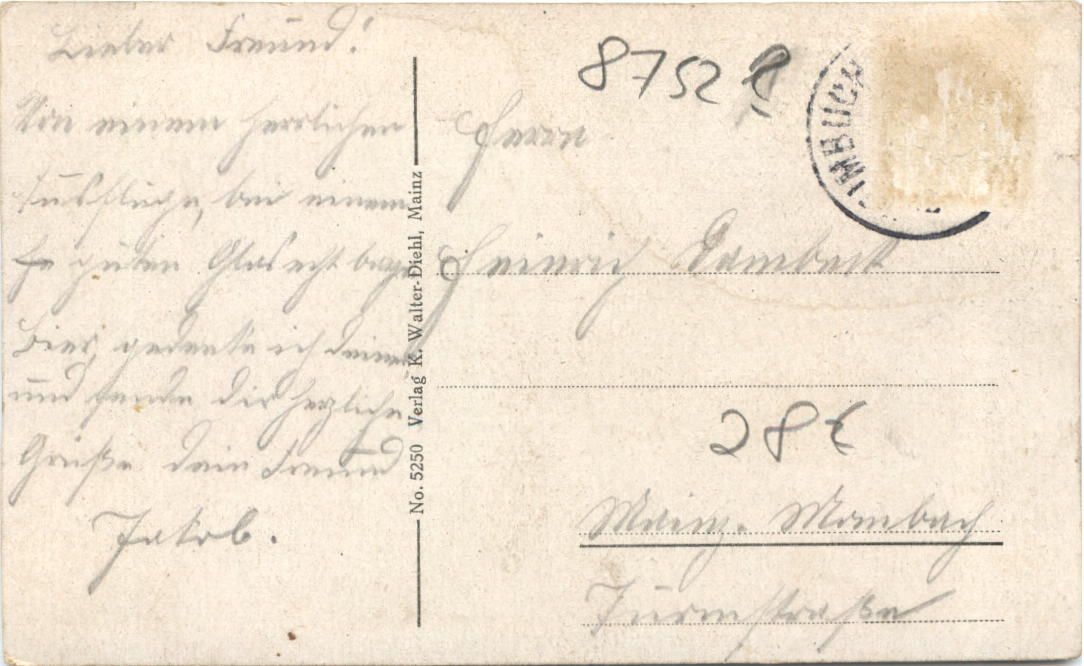 Lieber Freund!
Von einem herrlichen
Ausfluge, bei einem
guten Glas echt
Bier, gedenke ich deiner
und sende dir herzliche
Grüße dein Freund
Jakob.
No. 5250 Verlag K. Walter-Diehl, Mainz
8752 8
IMBUCH
Herrn
Heinrich
28€
Mainz-Mombach
Turmstraße